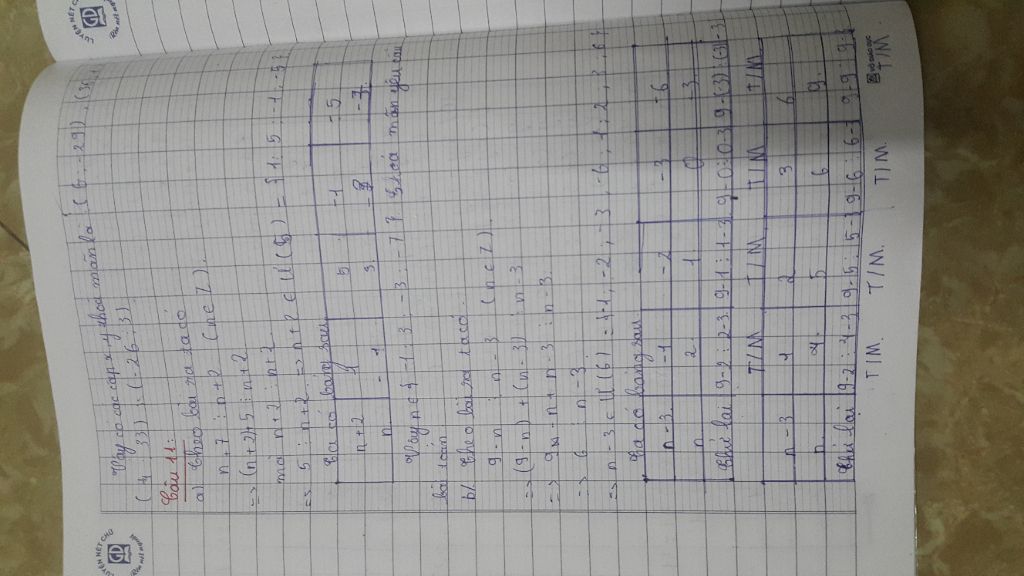 Vậy có các cặp x, y thỏa mãn là: (6; -29), (3;
(4; 33); (-26; 3).
Câu 11:
a) Theo bài ra ta có
n + 7 ⋮ n+2 (n∈Z).
=> (n+2)+5 ⋮ n+2
mà n+2 ⋮ n+2
=> 5 ⋮ n+2 => n+2 ∈ Ư(5) = {1; 5; -1; -5}
Ta có bảng sau
n+2 1 5 -1 -5
n -1 3 -3 -7
Vậy n∈{-1; 3; -3; -7} thỏa mãn yêu cầu
bài toán
b/ Theo bài ra ta có.
9-n ⋮ n-3 (n∈Z).
=> (9-n)+(n-3) ⋮ n-3
=> 9-n+n-3 ⋮ n-3.
=> 6 ⋮ n-3
=> n-3∈Ư(6)={-1; -2; -3; -6; 1; 2; 3; 6}
Ta có bảng sau
n-3 -1 -2 -3 -6
n 2 1 0 -3
Thử lại 9-2 ⋮ 2-3 9-1 ⋮ 1-3 9-0 ⋮ 0-3 9-(-3) ⋮ (-3)-3
T/M T/M T/M T/M
n-3 1 2 3 6
n 4 5 6 9
Thử lại 9-5 ⋮ 5-3 9-6 ⋮ 6-3 9-9 ⋮ 9-3
T/M. T/M. T/M. T/M